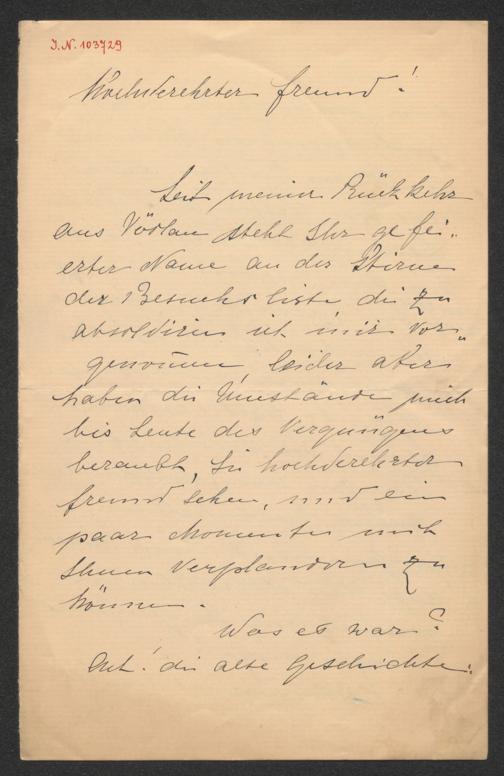 I.N. 103729
Hochverehrter Freund!
Seit meiner Rückkehr
aus Vöslau steht Ihr gefei-
erter Name an der Stirne
der Besuchsliste die zu
absolviren ich mir vor-
genommen, leider aber
haben die Umstände mich
bis heute des Vergnügens
beraubt, Sie hochverehrter
Freund sehen, und ein
paar Momente mit
Ihnen verplaudern zu
können.
Was es war?
Ach! die alte Geschichte: